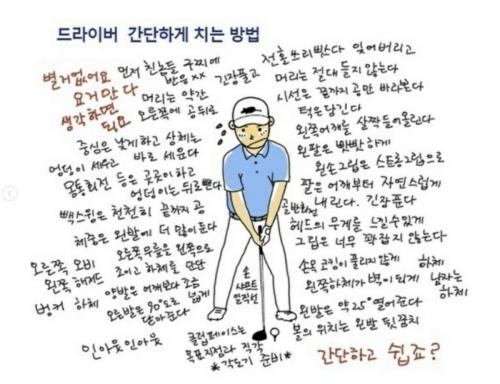 드라이버 간단하게 치는 방법
별거없어요
요거만 다
생각하면
되요
먼저 친놈들 구찌에
반응xx
머리는 약간
오른쪽에 공뒤로
중심은 낮게하고 상체는
엉덩이 세우고 바로 세운다
몸통회전 등은 곧곧이하고
엉덩이는 뒤로뺀다
빽스윙은 천천히 끝까지 공
체중은 왼발에 더 많이둔다
오른쪽 오비 오른쪽무릎을 왼쪽으로
왼쪽 해저드 조이고 하체를 단단
벙커 하체 양발은 어깨보다 조금
오른발은 90°로 넓게
닫아준다
인아웃인아웃
클럽페이스는
목표지점과 직각
*각도기 준비*
긴장풀고
전홀쓰리뻐스다 잊어버리고
머리는 절대 들지 않는다
시선은 끝까지 공만 바라본다
턱은당긴다
왼쪽어깨를 살짝들어올린다
왼팔은 빳빳하게
왼손그립은 스트롱그립으로
팔은 어깨부터 자연스럽게
내린다. 긴장푼다
골반회전
헤드의 무게를 느낄수있게
그립은 너무 꽉잡지 않는다
손목 코킹이 풀리지 않게 하체
왼쪽하체가 벽이되게 남자는
하체
왼발은 약25°열어준다
볼의 위치는 왼발 뒷꿈치
손
샤프트
일직선
간단하고 쉽죠?